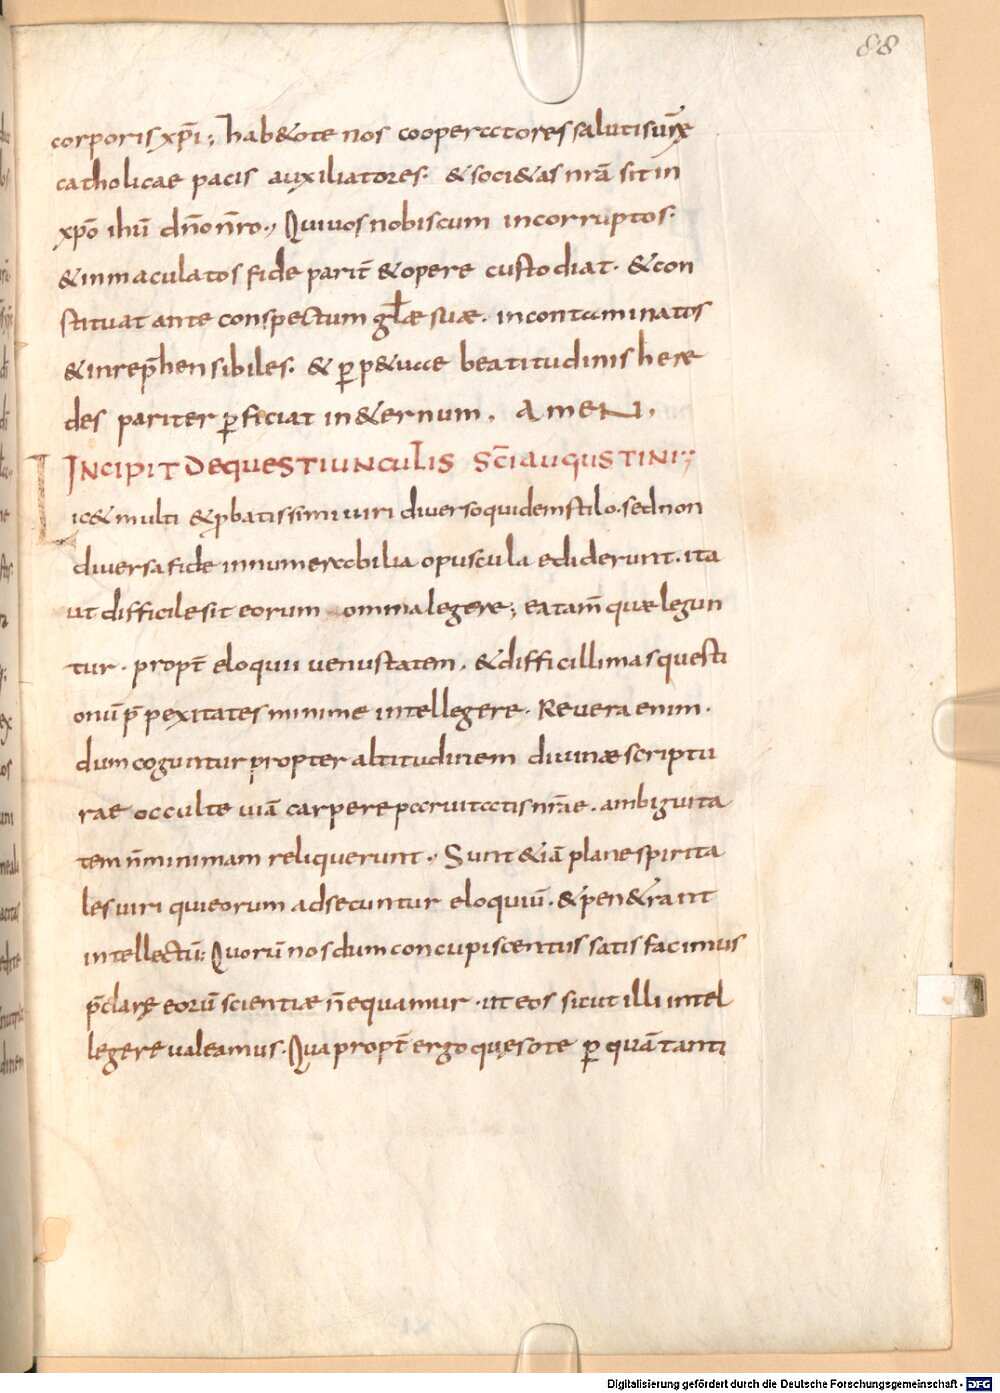 88
corporis xp̄i; hab&ote nos cooperatores salutis ur̄ę
catholicae pacis auxiliatores· & soci&as nr̄a sit in
xp̄o ihū dn̄o nr̄o·, Qui uos nobiscum incorruptos·
& inmaculatos fide parit̄ & opere custodiat· & con
stituat ante conspectum gl̄æ suæ· incontaminatos
& inrep̄hensibiles· & ꝑp&uae beatitudinis here
des pariter ꝑficiat in &ernum. AMEN.
INCIPIT DE QUESTIUNCULIS SC̄I AUGUSTINI;
Lic& multi & ꝓbatissimi uiri diuerso quidem stilo· sed non
diuersa fide innumerabilia opuscula ediderunt· ita
ut difficile sit eorum omnia legere; ea tam̄ quæ legun
tur· propt̄ eloquii uenustatem· & difficillimas questi
onū p̄pexitates minime intellegere· Reuera enim·
dum coguntur propter altitudinem diuinæ scriptu
rae occulte uiā carpere paruitatis nr̄ae· ambiguita
tem n̄ minimam reliquerunt·, Sunt &iā plane spirita
les uiri qui eorum adsecuntur eloquiū· & pen&rant
intellectū; Quorū nos dum concupiscentiis satis facimus
p̄clarę eorū scientiæ n̄ equamur· ut eos sicut illi intel
legere ualeamus· Quapropt̄ ergo quęsote ꝑ quā tanti
Digitalisierung gefördert durch die Deutsche Forschungsgemeinschaft - DFG